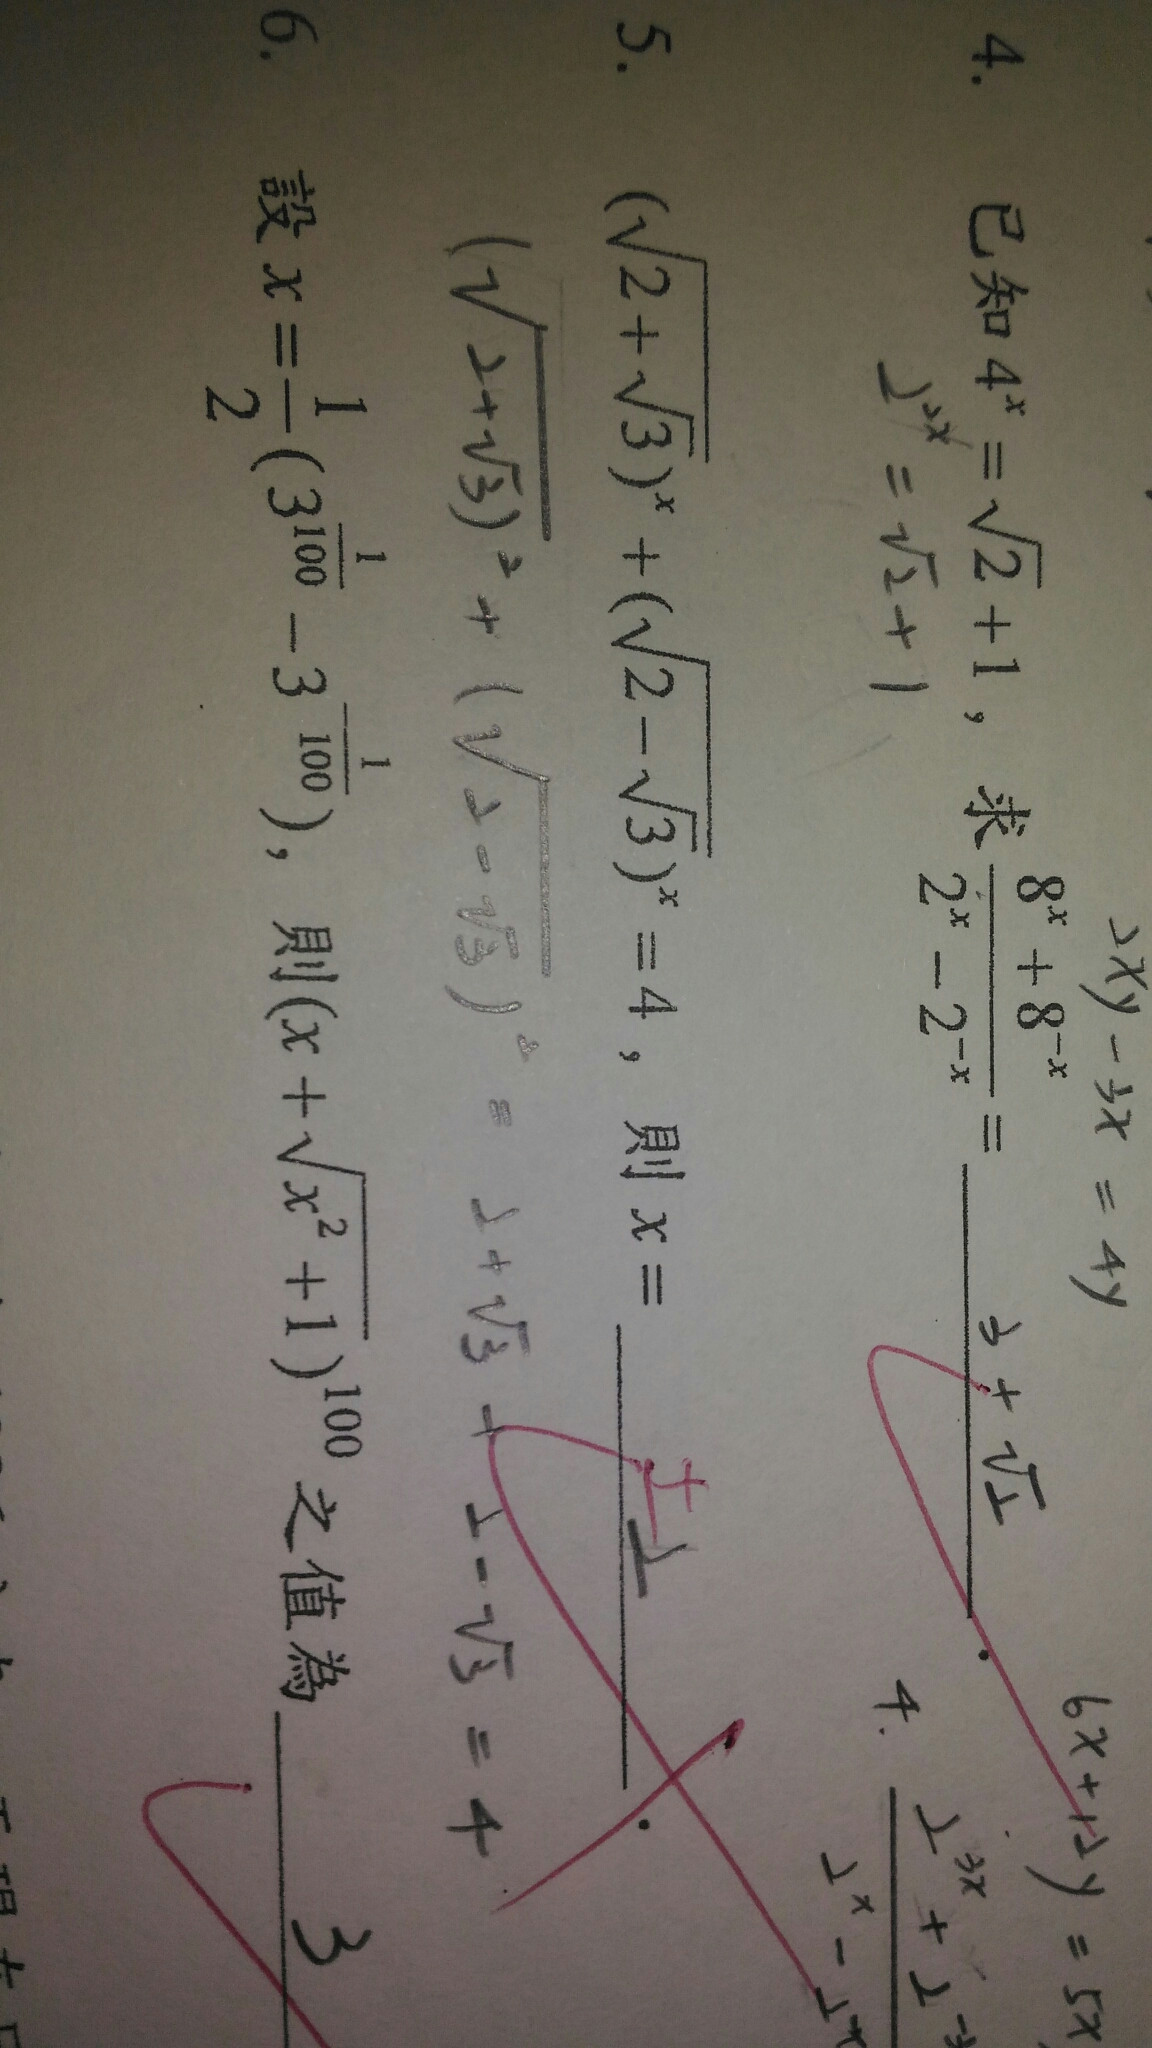 2xy - 3x = 4y
6x + 12y = 5x
4. 已知 4^x = √2 + 1，求 (8^x + 8^-x)/(2^x - 2^-x) = 3 + √2 .
2^2x = √2 + 1
4. (2^3x + 2^-3x)/(2^x - 2^-x)
5. (√(2+√3))^x + (√(2-√3))^x = 4，則 x = ±2 .
(√(2+√3))^2 + (√(2-√3))^2 = 2+√3 + 2-√3 = 4
6. 設 x = 1/2 (3^(1/100) - 3^(-1/100))，則 (x + √(x^2+1))^100 之值為 3